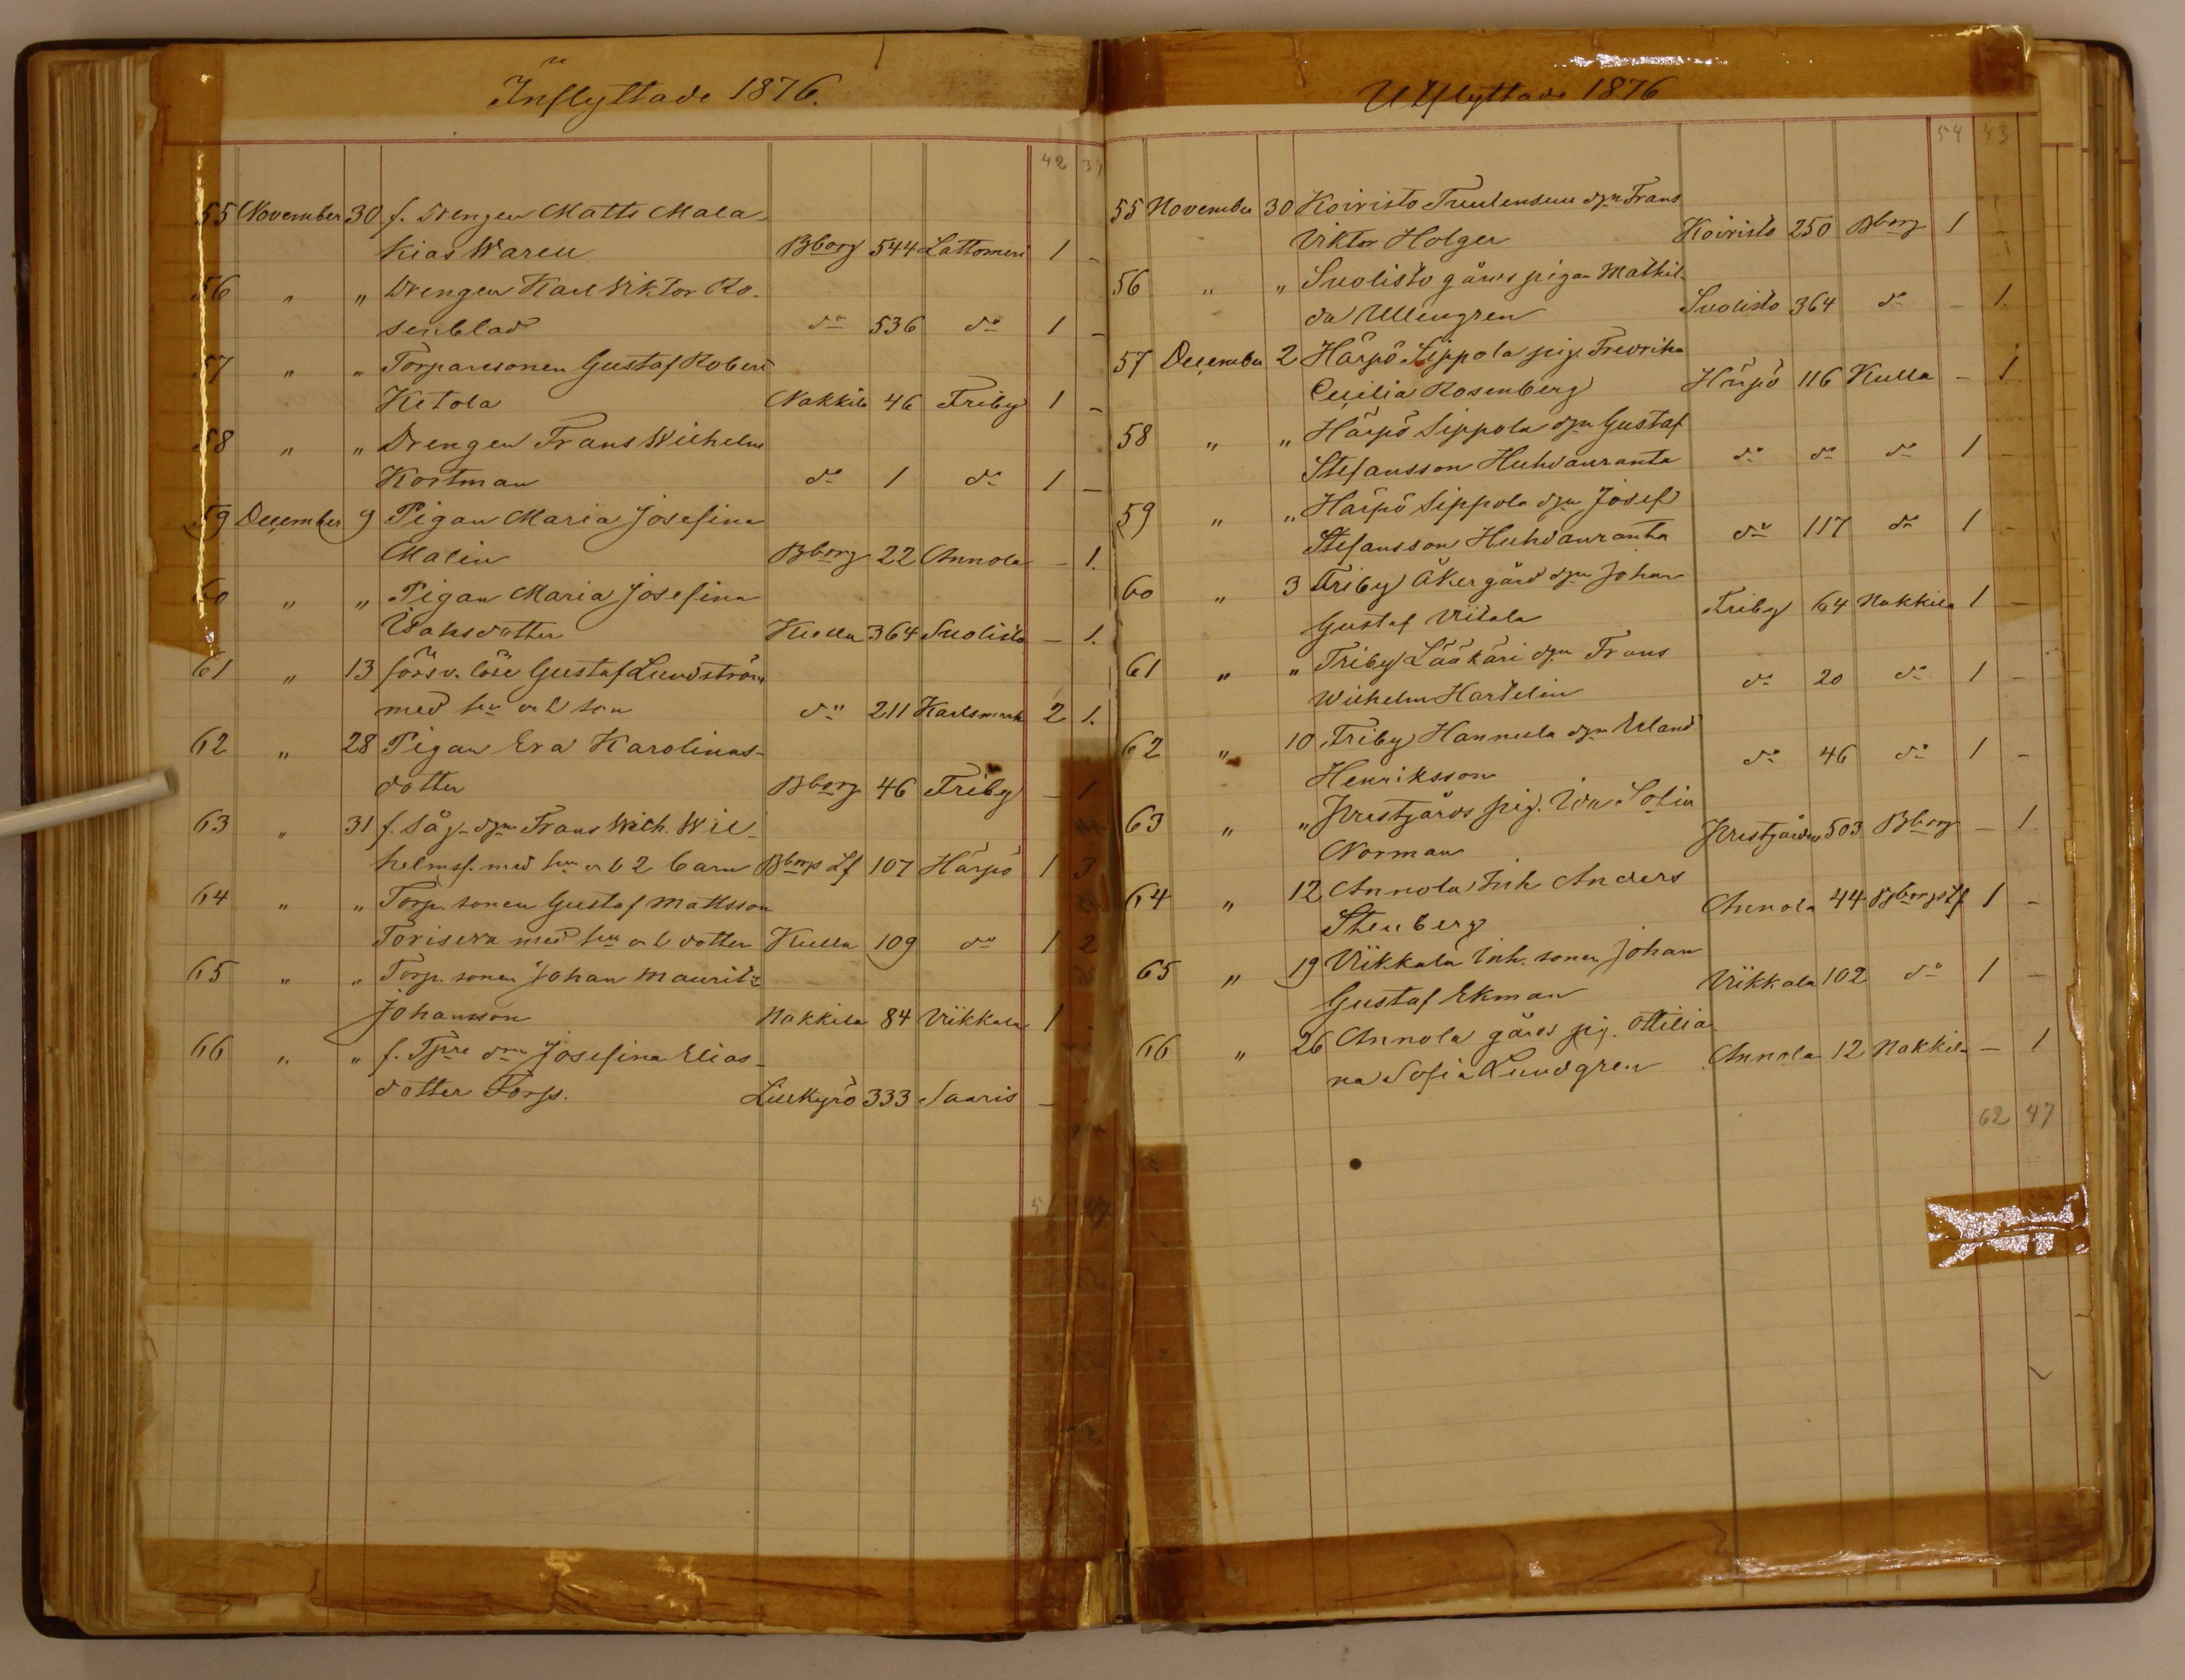 Inflyttade 1876.
42 34
55 November 30 f. Drengen Matts Mala
kias Waren Bborg 544 Lattomeri 1 -
56 " " Drengen Karl Viktor Ro-
senblad do 536 do 1 -
57 " " Torparesonen Gustaf Robert
Ketola Nakkila 46 Friby 1 -
58 " " Drengen Frans Wilhelm
Kortman do 1 do 1 -
59 December 9 Pigan Maria Josefina
Malin Bborg 22 Annola - 1.
60 " " Pigan Maria Josefina
Isaksdotter Kulla 364 Suolisto - 1.
61 " 13 försv. löse Gustaf Lundström
med hu och son do 211 Karlsmark 2 1.
62 " 28 Pigan Eva Karolinas-
dotter Bborg 46 Friby - 1
63 " 31 f. Såg-dgn Frans Wilh. Wil-
helmsf. med hu och 2 barn Bborgs Lf 107 Härpö 1 3
64 " " Torp. sonen Gustaf Mattsson
Torisewa med hu och dotter Kulla 109 do 1 2
65 " " Torp. sonen Johan Maurits
Johansson Nakkila 84 Viikkala 1 -
66 " " f. Tpre dm Josefina Elias-
dotter Forss. Luikyrö 333 Saaris -
51 47
Utflyttade 1876
54 43
55 November 30 Koiristo Tuulensuu dgn Frans
Viktor Holger Koiristo 250 Bborg 1 -
56 " " Suolisto gårds pigan Mathil-
da Ullengren Suolisto 364 do - 1.
57 December 2 Härpö Sippola pig. Fredrika
Cecilia Rosenberg Härpö 116 Kulla - 1
58 " " Härpö Sippola dgn Gustaf
Stefansson Huhdanranta do do do 1 -
59 " " Härpö Sippola dgn Josef
Stefansson Huhdanranta do 117 do 1 -
60 " 3 Friby Åkergård dgn Johan
Gustaf Viitala Friby 64 Nakkila 1 -
61 " " Friby Lääkäri dgn Frans
Wilhelm Hartelin do 20 do 1 -
62 " 10 Friby Hannula dgn Erland
Henriksson do 46 do 1 -
63 " " Prestgårds pig. Ida Sofia
Norman Prestgården 503 Bborg - 1
64 " 12 Annola Inh Anders
Stenberg Annola 44 Bborgs Lf 1 -
65 " 19 Viikkala Inh. sonen Johan
Gustaf Ekman Viikkala 102 do 1 -
66 " 26 Annola gårds pig. Ottilia-
na Sofia Lundgren Annola 12 Nakkila - 1
62 47